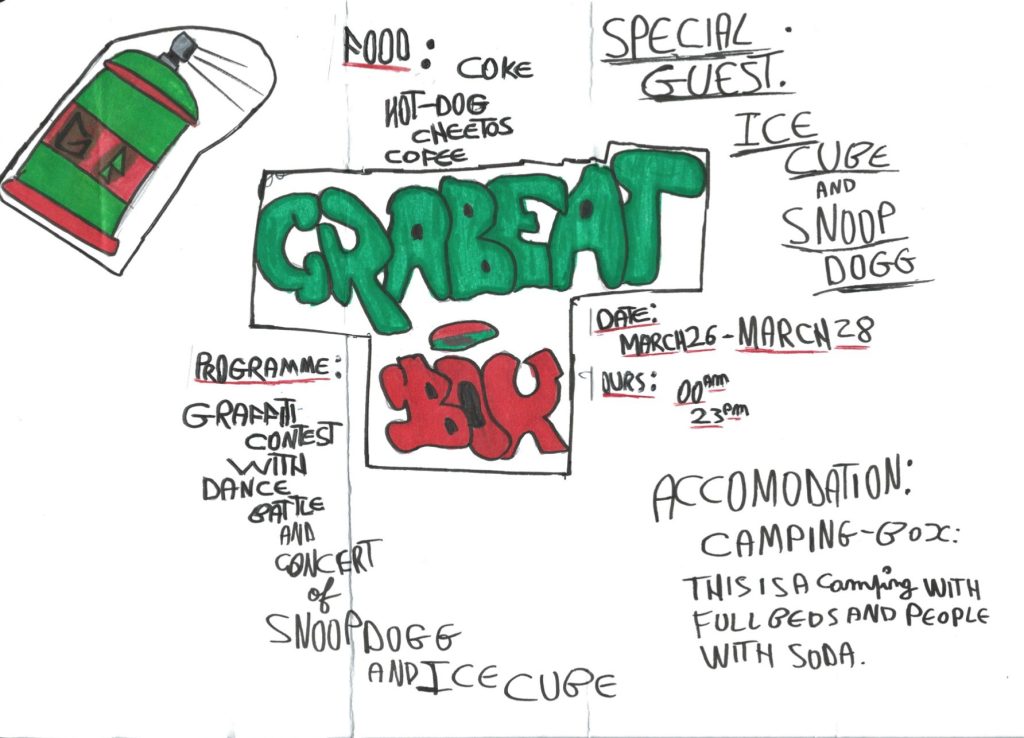 G A
FOOD:
COKE
HOT-DOG
CHEETOS
COFEE
SPECIAL
GUEST.
ICE
CUBE
AND
SNOOP
DOGG
GRABEAT
BOX
DATE:
MARCH 26 - MARCH 28
OURS:
00 AM
23 PM
PROGRAMME:
GRAFFITI
CONTEST
WITH
DANCE
BATTLE
AND
CONCERT
of
SNOOP DOGG
AND ICE CUBE
ACCOMODATION:
CAMPING-BOX:
THIS IS A Camping WITH
FULL BEDS AND PEOPLE
WITH SODA.